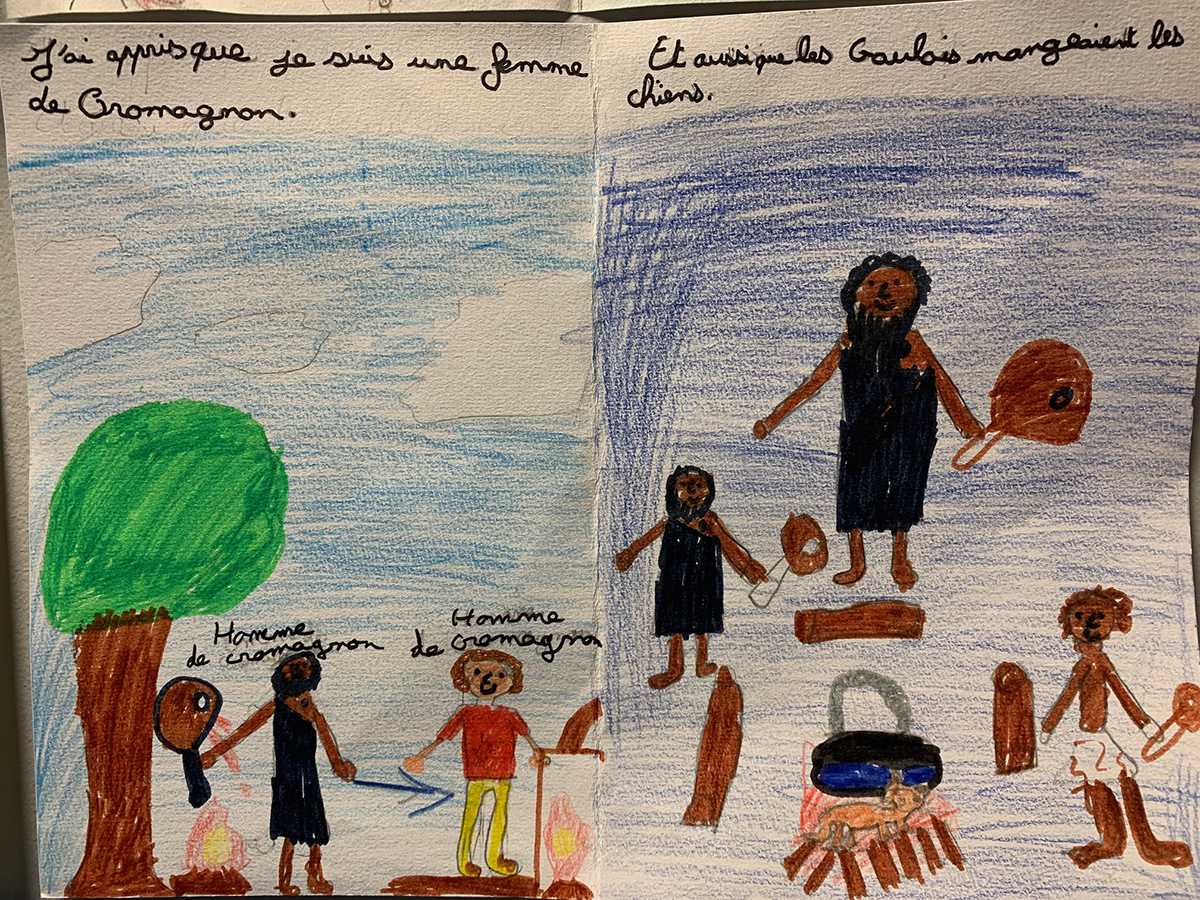 J'ai appris que je suis une femme
de Cromagnon.
Et aussi que les Gaulois mangeaient les
chiens.
Homme
de cromagnon
Homme
de cromagnon